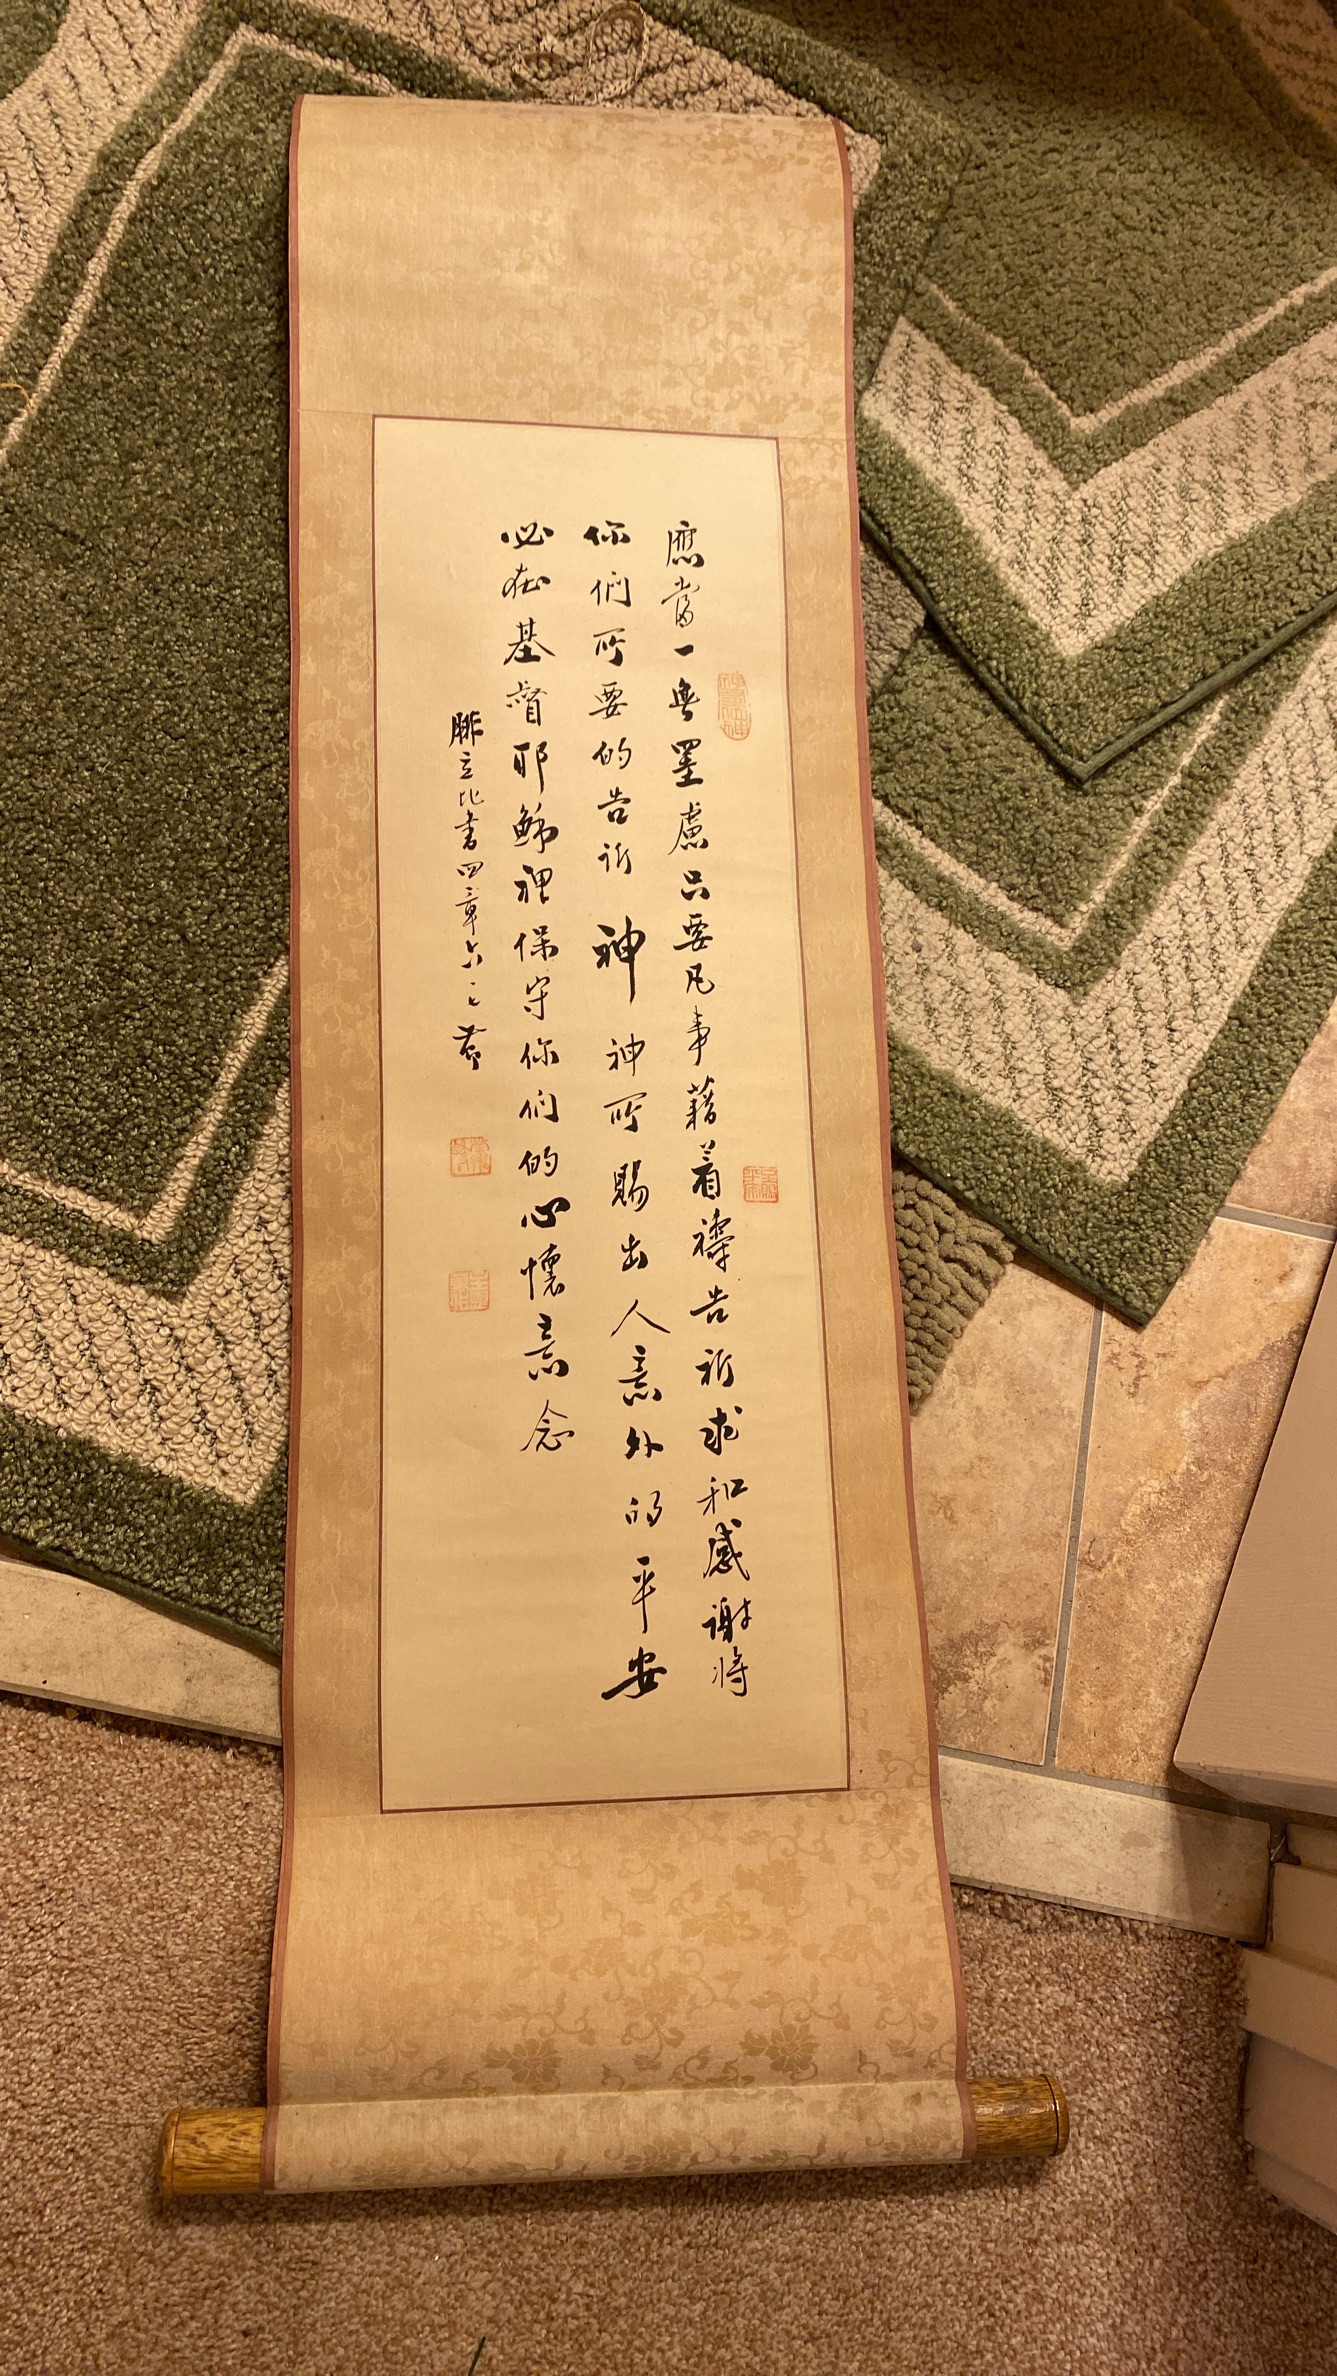 應當一無罣慮只要凡事藉着禱告祈求和感謝將
你們所要的告訴 神 神所賜出人意外的平安
必在基督耶穌裡保守你們的心懷意念
腓立比書四章六、七節